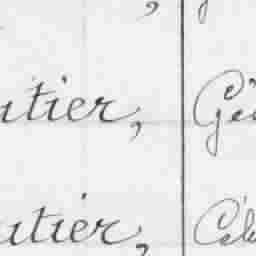 utier, Gé
utier, Cél